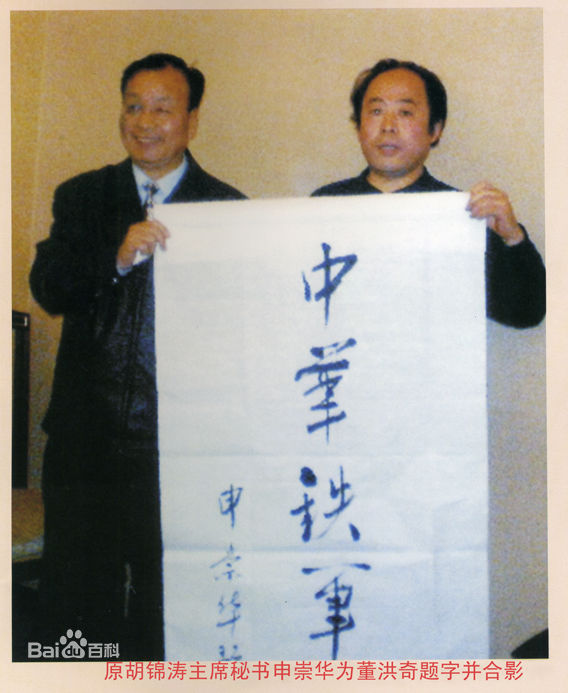 中華鉄軍
申崇华
Bai百科
原胡锦涛主席秘书申崇华为董洪奇题字并合影